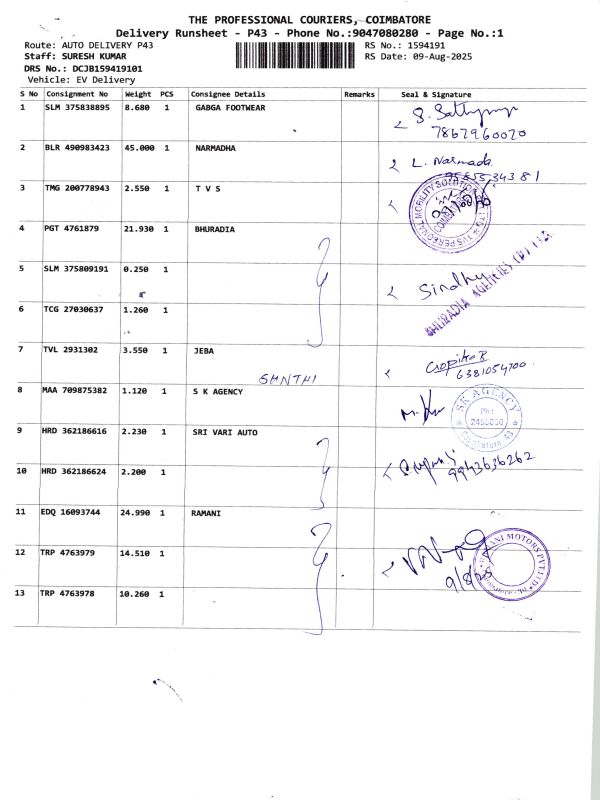 THE PROFESSIONAL COURIERS, COIMBATORE
Delivery Runsheet - P43 - Phone No.:9047080280 - Page No.:1
Route: AUTO DELIVERY P43 RS No.: 1594191
Staff: SURESH KUMAR RS Date: 09-Aug-2025
DRS No.: DCJB159419101
Vehicle: EV Delivery
S No Consignment No Weight PCS Consignee Details Remarks Seal & Signature
1 SLM 375838895 8.680 1 GABGA FOOTWEAR
7867960020
2 BLR 490983423 45.000 1 NARMADHA L. Narmada
3 TMG 200778943 2.550 1 T V S
4 PGT 4761879 21.930 1 BHURADIA
5 SLM 375809191 0.250 1 Sindhu
BHURADIA AGENCIES (P) LTD
6 TCG 27030637 1.260 1
7 TVL 2931302 3.550 1 JEBA
6381054700
8 MAA 709875382 1.120 1 S K AGENCY
SK AGENCY
9 HRD 362186616 2.230 1 SRI VARI AUTO
9943636262
10 HRD 362186624 2.200 1
11 EDQ 16093744 24.990 1 RAMANI
12 TRP 4763979 14.510 1
13 TRP 4763978 10.260 1